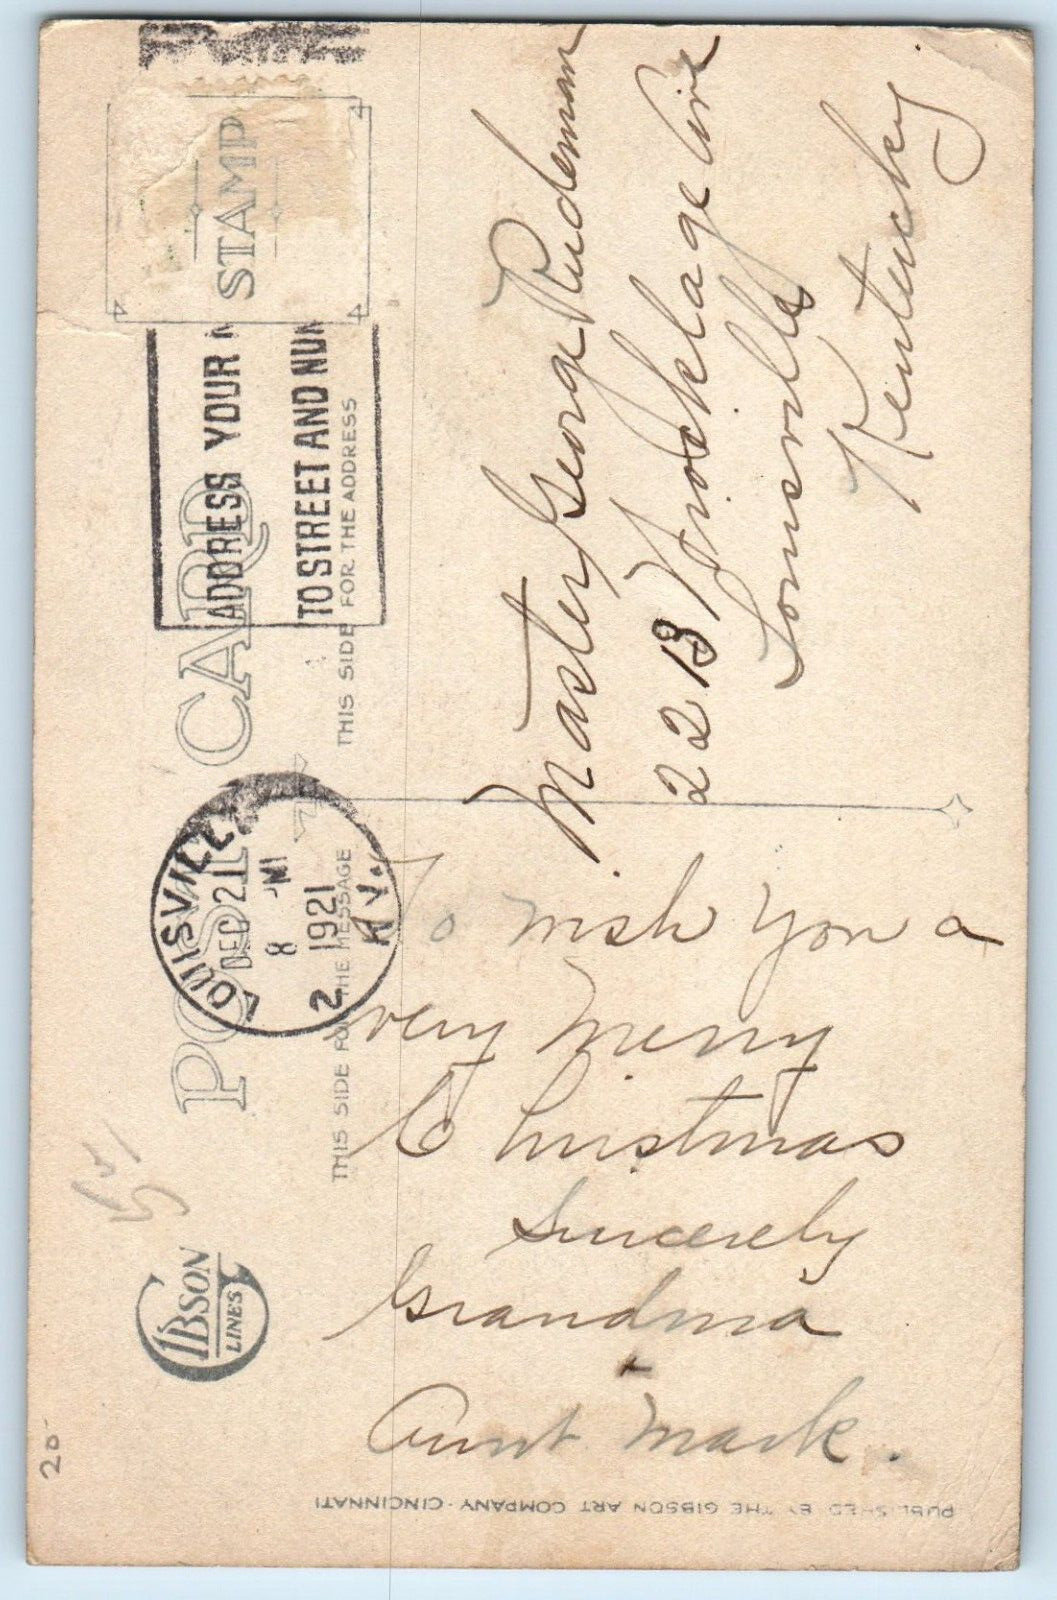 POST CARD
THIS SIDE FOR THE MESSAGE
THIS SIDE FOR THE ADDRESS
STAMP
LOUISVILLE
DEC 21
8
1921
2
KY.
ADDRESS YOUR M
TO STREET AND NUM
To wish you a
very merry
Christmas
Sincerely
Grandma
+
Aunt Mark.
Master George Rudeman
Ave
Louisville
Kentucky
GIBSON
LINES
PUBLISHED BY THE GIBSON ART COMPANY · CINCINNATI
20-